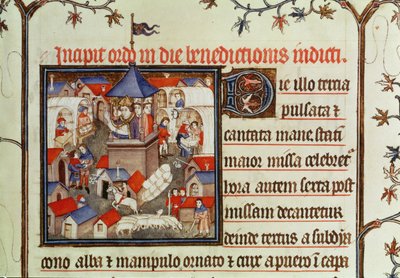 Incipit ordo in die benedictionis indicti.
Die illo tercia
pulsata ⁊
cantata mane stati
maior missa celebret
hora autem serta post
missam decantetur
deinde tercus a subdya
cono alba ⁊ manipulo ornato ⁊ cruce a puero ī capa